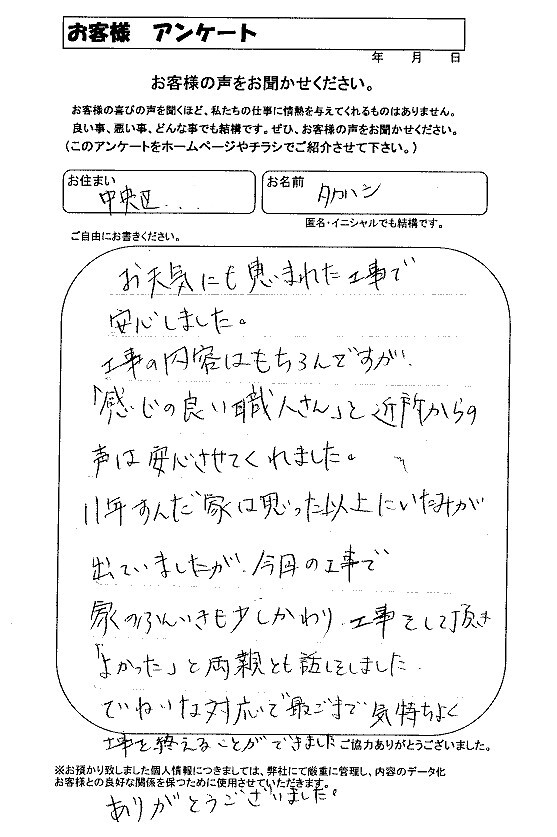 お客様 アンケート
年 月 日
お客様の声をお聞かせください。
お客様の喜びの声を聞くほど、私たちの仕事に情熱を与えてくれるものはありません。
良い事、悪い事、どんな事でも結構です。ぜひ、お客様の声をお聞かせください。
(このアンケートをホームページやチラシでご紹介させて下さい。)
お住まい
中央区...
お名前
タカハシ
匿名・イニシャルでも結構です。
ご自由にお書きください。
お天気にも恵まれた工事で
安心しました。
工事の内容はもちろんですが、
「感じの良い職人さん」と近所からの
声は安心させてくれました。
11年すんだ家は思った以上にいたみが
出ていましたが、今回の工事で
家のふんいきも少しかわり、工事をして頂き
「よかった」と両親とも話しをしました。
ていねいな対応で最ごまで気持ちよく
工事を終えることができました
ご協力ありがとうございました。
※お預かり致しました個人情報につきましては、弊社にて厳重に管理し、内容のデータ化
お客様との良好な関係を保つために使用させていただきます。
ありがとうございました。